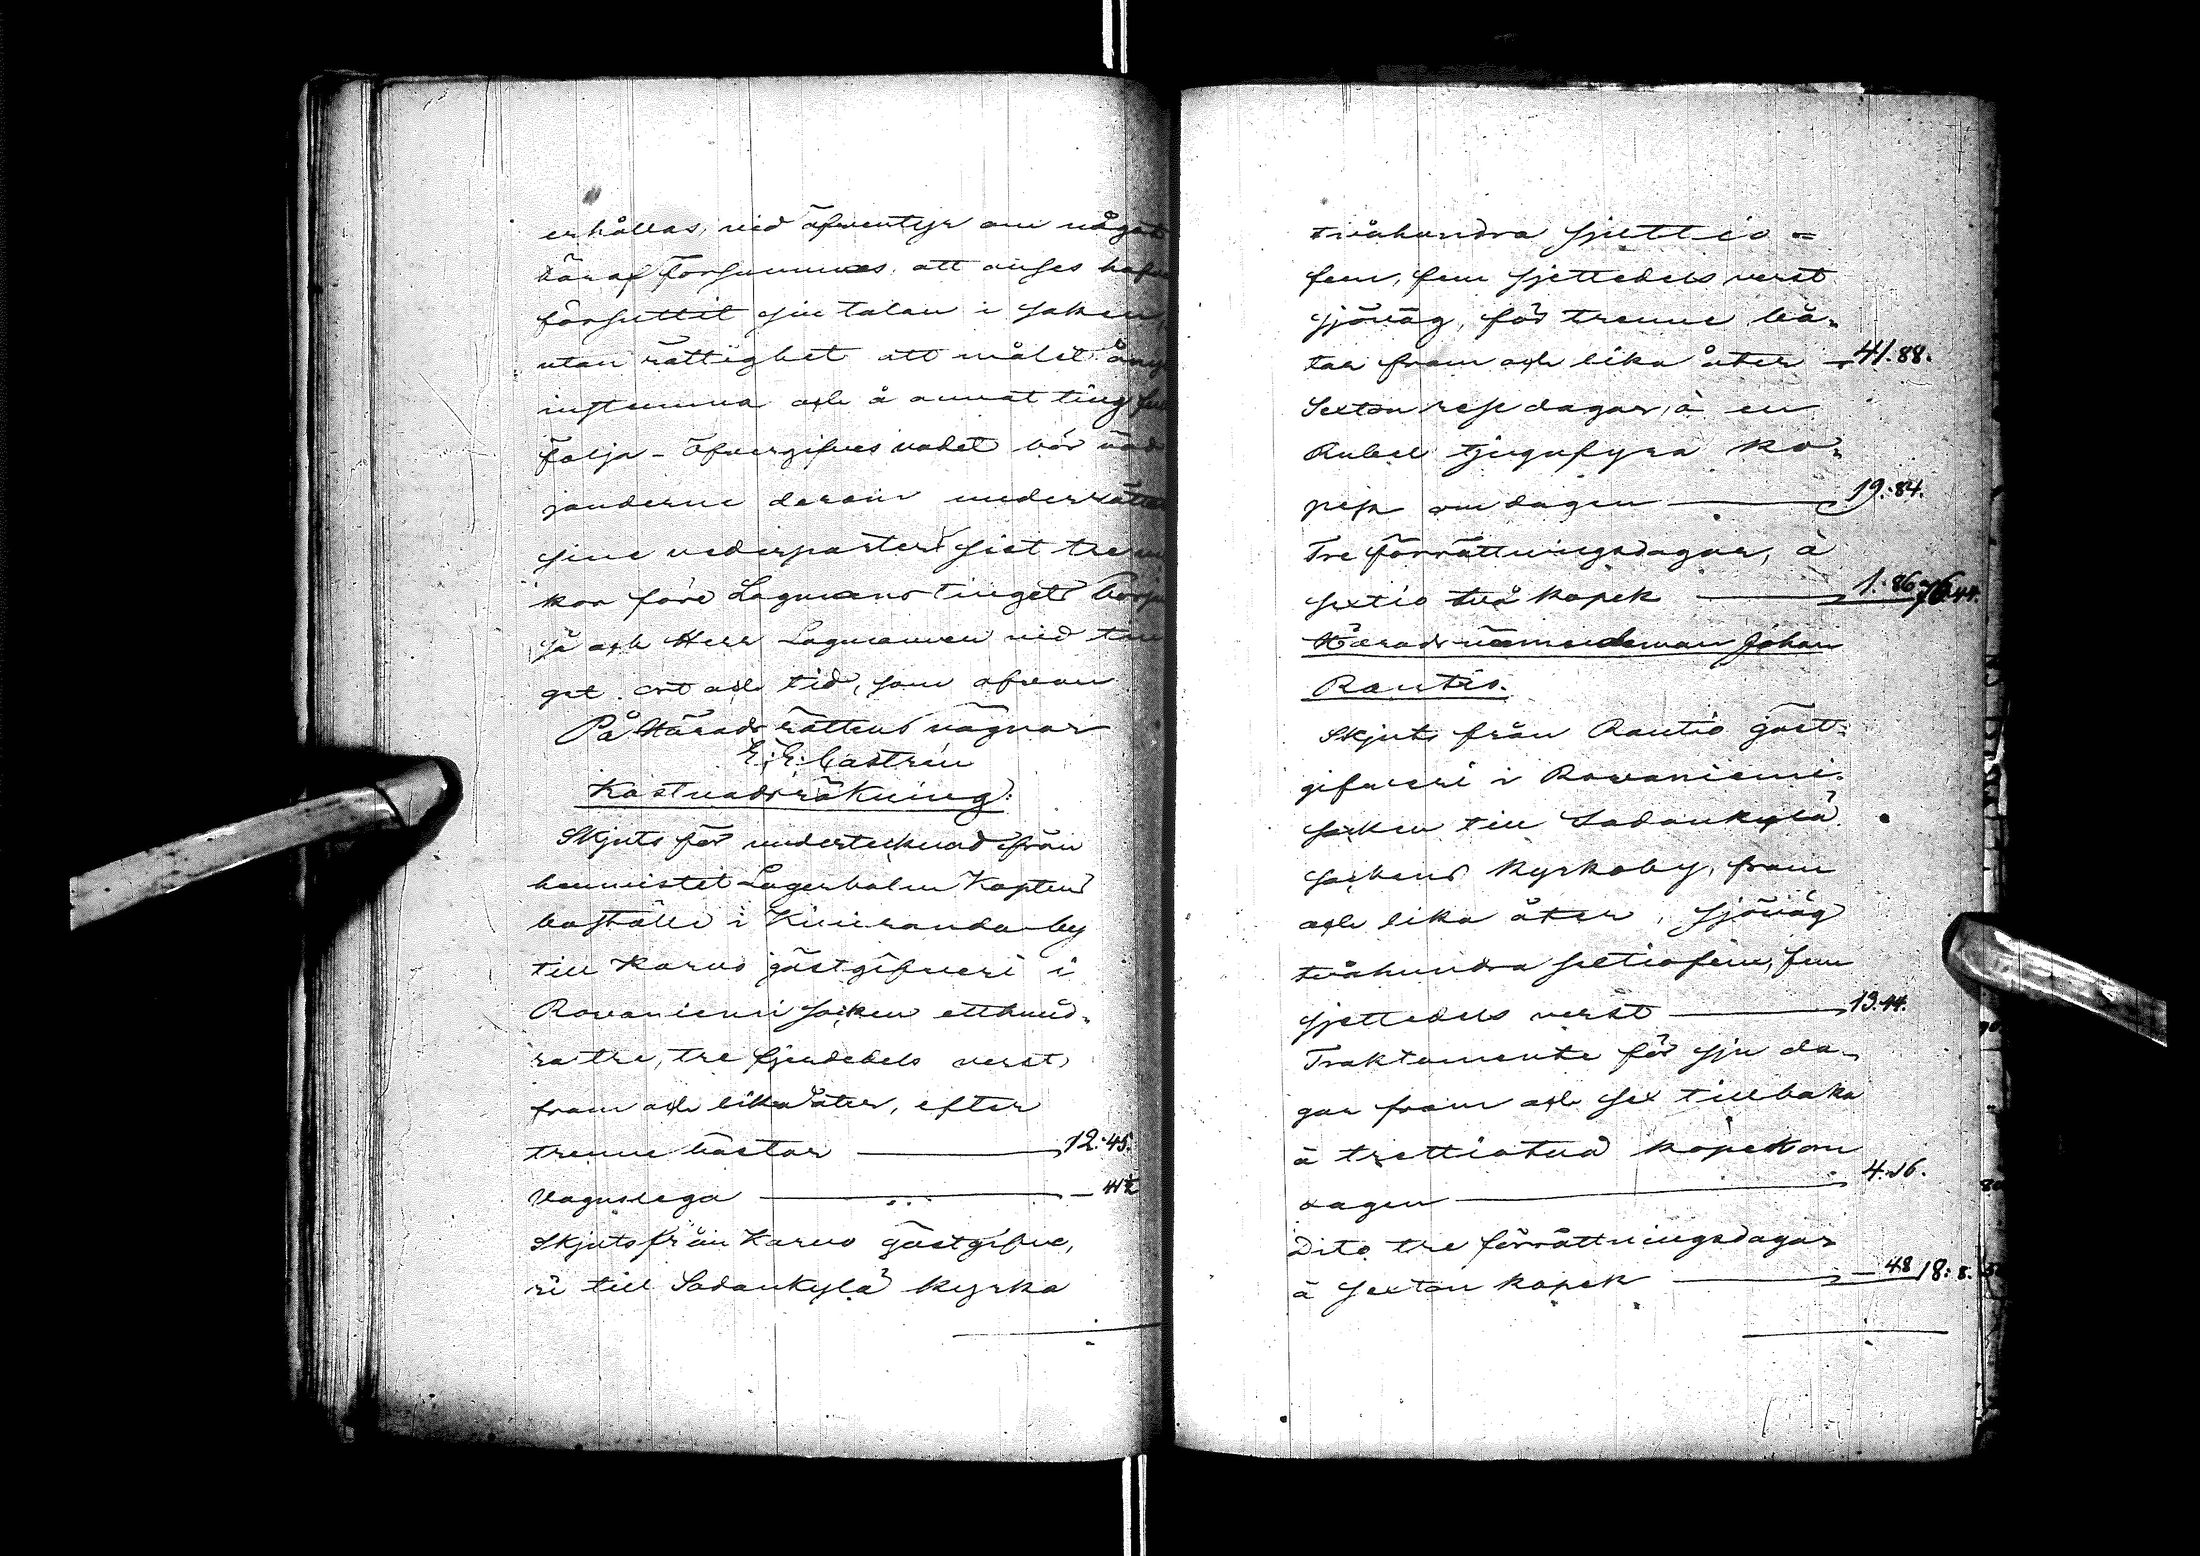 erhållas, vid äfventyr om något
häraf försummas, att anses hafva
försuttit sin talan i saken,
utan rättighet att målet å nyo
instemma och å annat ting full
följa - Öfvergifves vadet bör väd
janderne derom underrätta
sine vederparter sist tre vec
kor före Lagmans tinget börja
så och Herr Lagmannen vid tin
get. Ort och tid, som ofvan
På Härads rättens vägnar
E: E: Castrén
Kostnadsräkning:
Skjuts för undertecknad från
hemmistet Lagerholm Kaptens
boställe i Kiviranda by
till Karvo gästgifveri i
Rovaniemi socken etthund-
ra tre, tre fjerdedels verst,
fram och lika åter, efter
trenne hästar 12.45.
Vagnslega - 41½
Skjuts från Karvo gästgifve,
ri till Sodankylä kyrka
tvåhundra sjettio=
fem, fem sjettedels verst
sjöväg, för trenne bå-
tar fram och lika åter 41.88.
Sexton resedagar, à en
Rubel tjugufyra ko-
pek om dagen 19.84.
Tre förrättningsdagar, à
sextio två kopek 1.86 76.44.
Härads nämndeman Johan
Rautio.
Skjuts från Rautio gäst-
gifveri i Rovaniemi
socken till Sodankylä
sockens Kyrkoby, fram
och lika åter, sjöväg
tvåhundra sextiofem, fem
sjettedels verst 13.44.
Traktamente för sju da-
gar fram och sex tillbaka
à trettiotvå kopek om
dagen 4.16.
Dito tre förrättningsdagar
à sexton kopek - 48 18: 8.